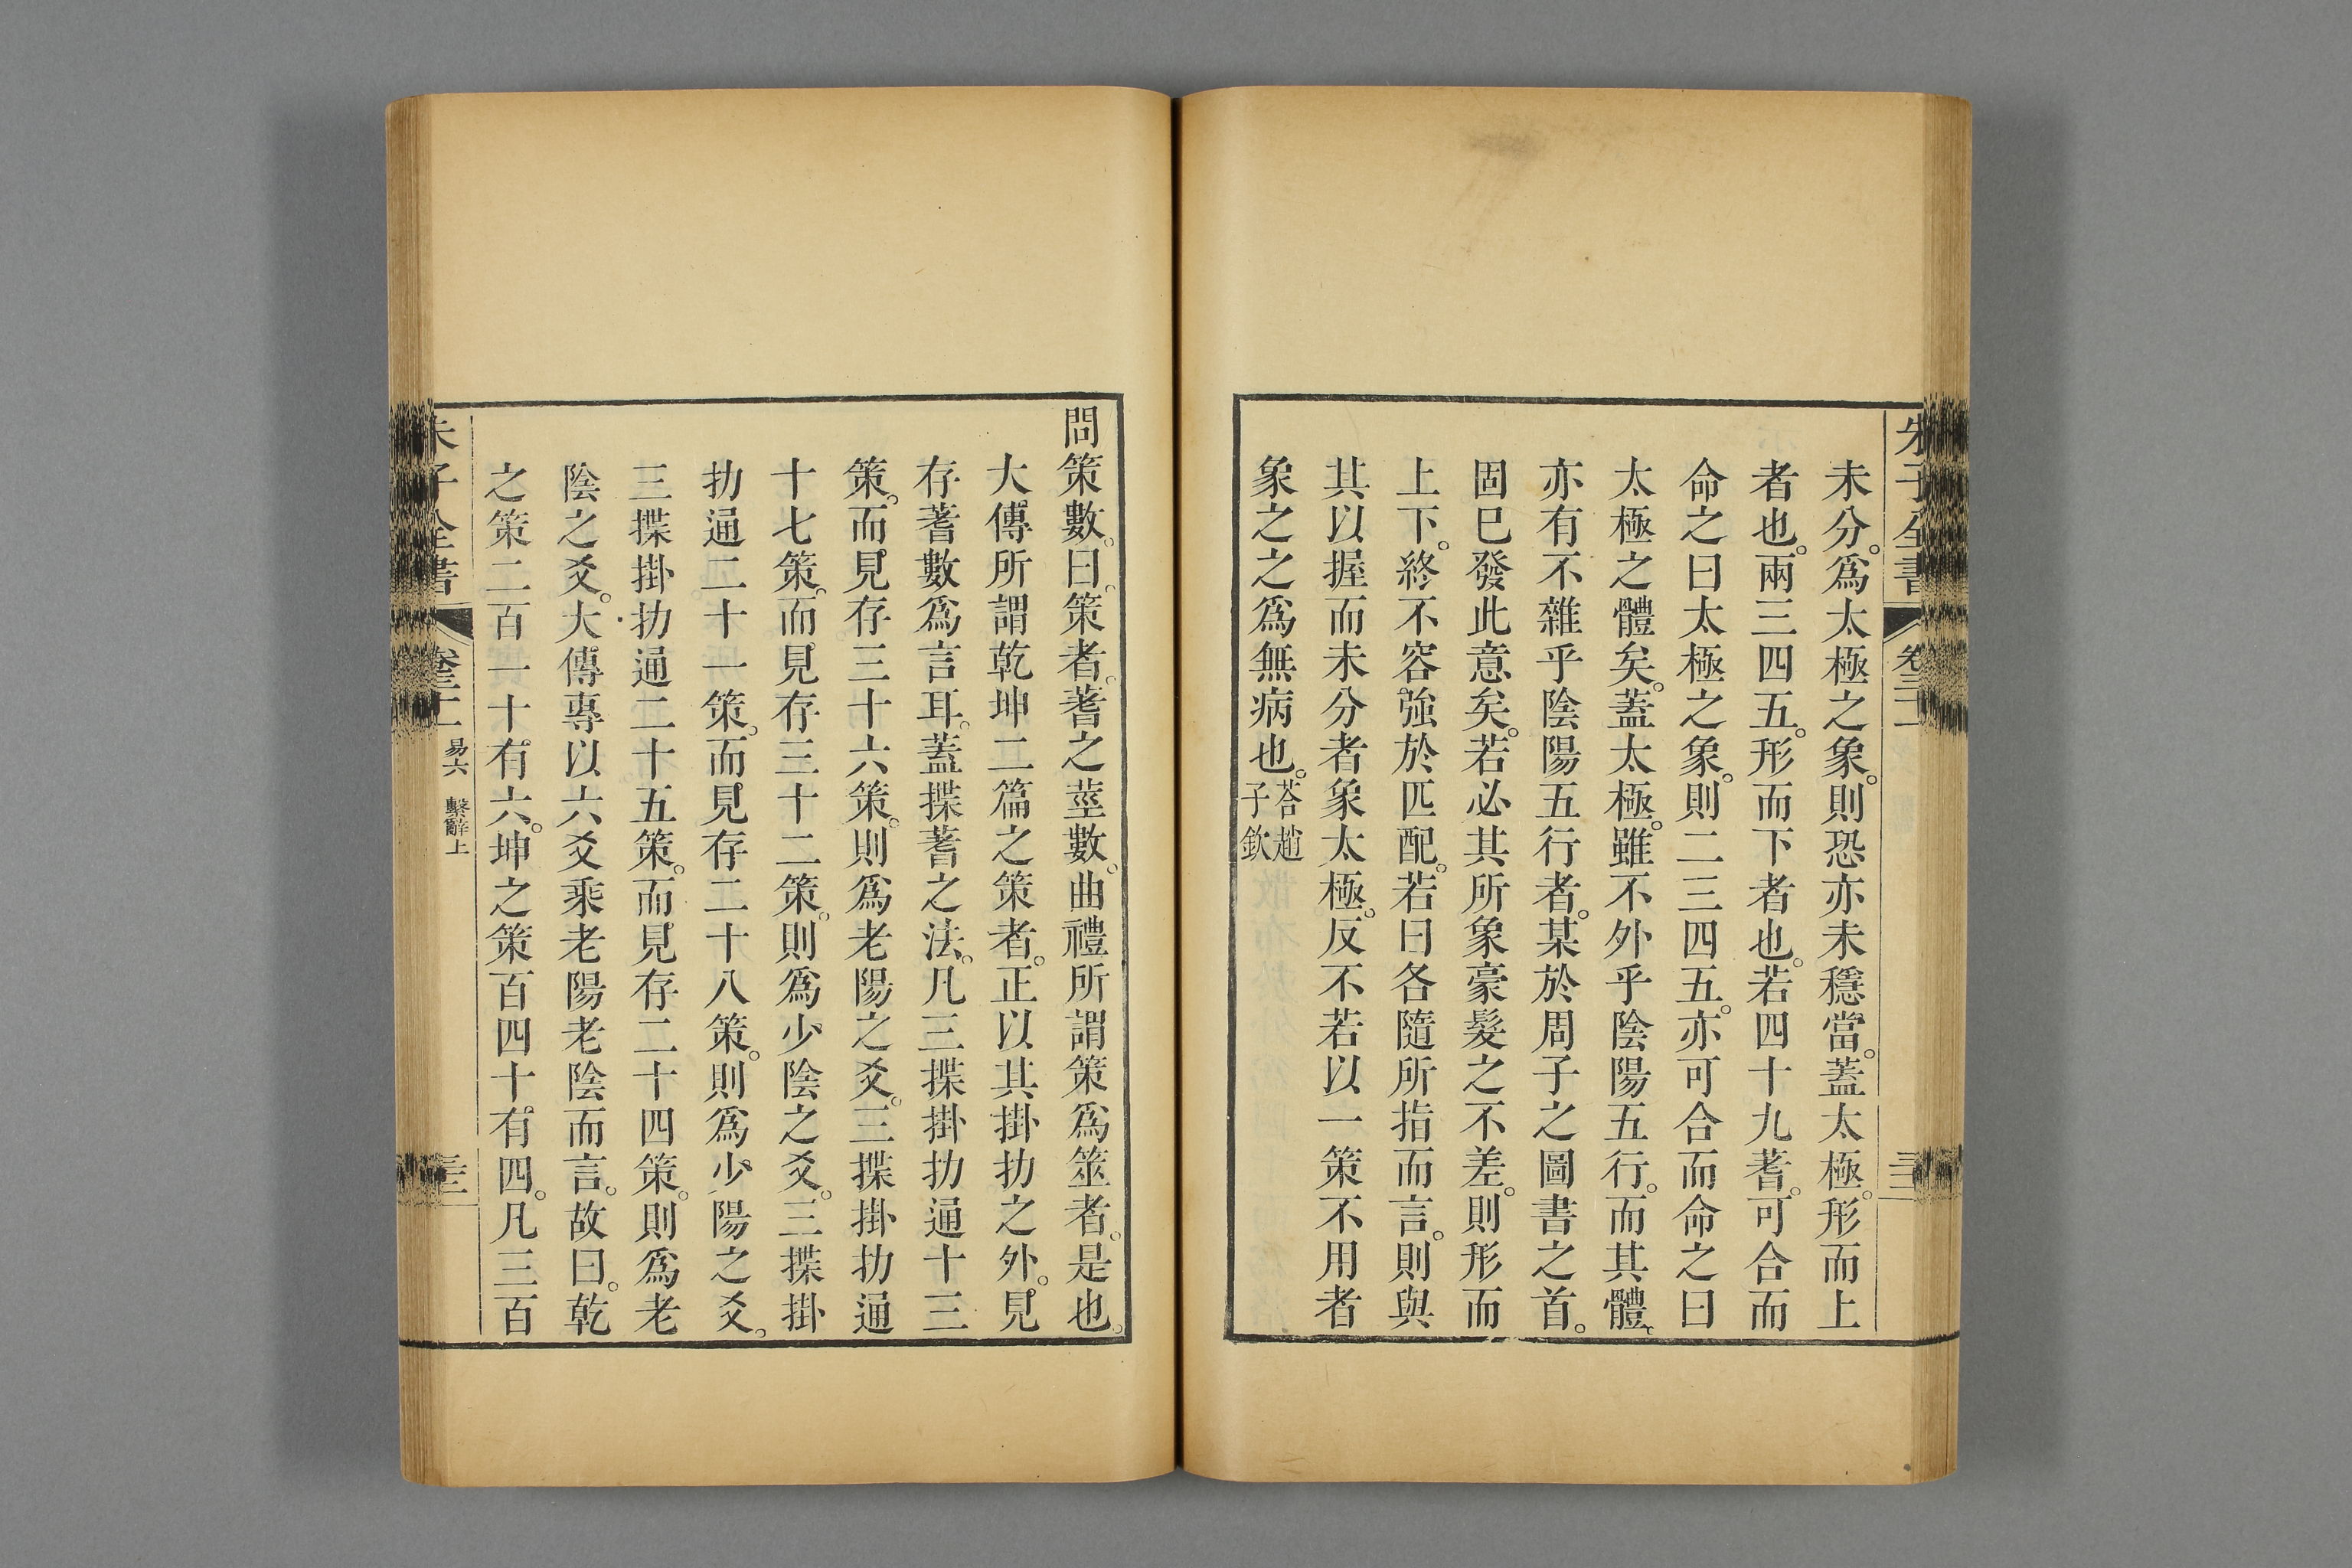 朱子全書 卷三十一
未分。爲太極之象。則恐亦未穩當。蓋太極。形而上
者也。兩三四五。形而下者也。若四十九蓍。可合而
命之曰太極之象。則二三四五。亦可合而命之曰
太極之體矣。蓋太極。雖不外乎陰陽五行。而其體。
亦有不雜乎陰陽五行者。某於周子之圖書之首。
固已發此意矣。若必其所象豪髮之不差。則形而
上下。終不容強於匹配。若曰各隨所指而言。則與
其以握而未分者象太極。反不若以一策不用者
象之之爲無病也。荅趙子欽
問策數。曰。策者。蓍之莖數。曲禮所謂策爲筮者。是也。
大傳所謂乾坤二篇之策者。正以其掛扐之外。見
存蓍數爲言耳。蓋揲蓍之法。凡三揲掛扐通十三
策。而見存三十六策。則爲老陽之爻。三揲掛扐通
十七策。而見存三十二策。則爲少陰之爻。三揲掛
扐通二十一策。而見存二十八策。則爲少陽之爻。
三揲掛扐通二十五策。而見存二十四策。則爲老
陰之爻。大傳專以六爻乘老陽老陰而言。故曰。乾
之策二百一十有六。坤之策百四十有四。凡三百
朱子全書 易六 繫辭上